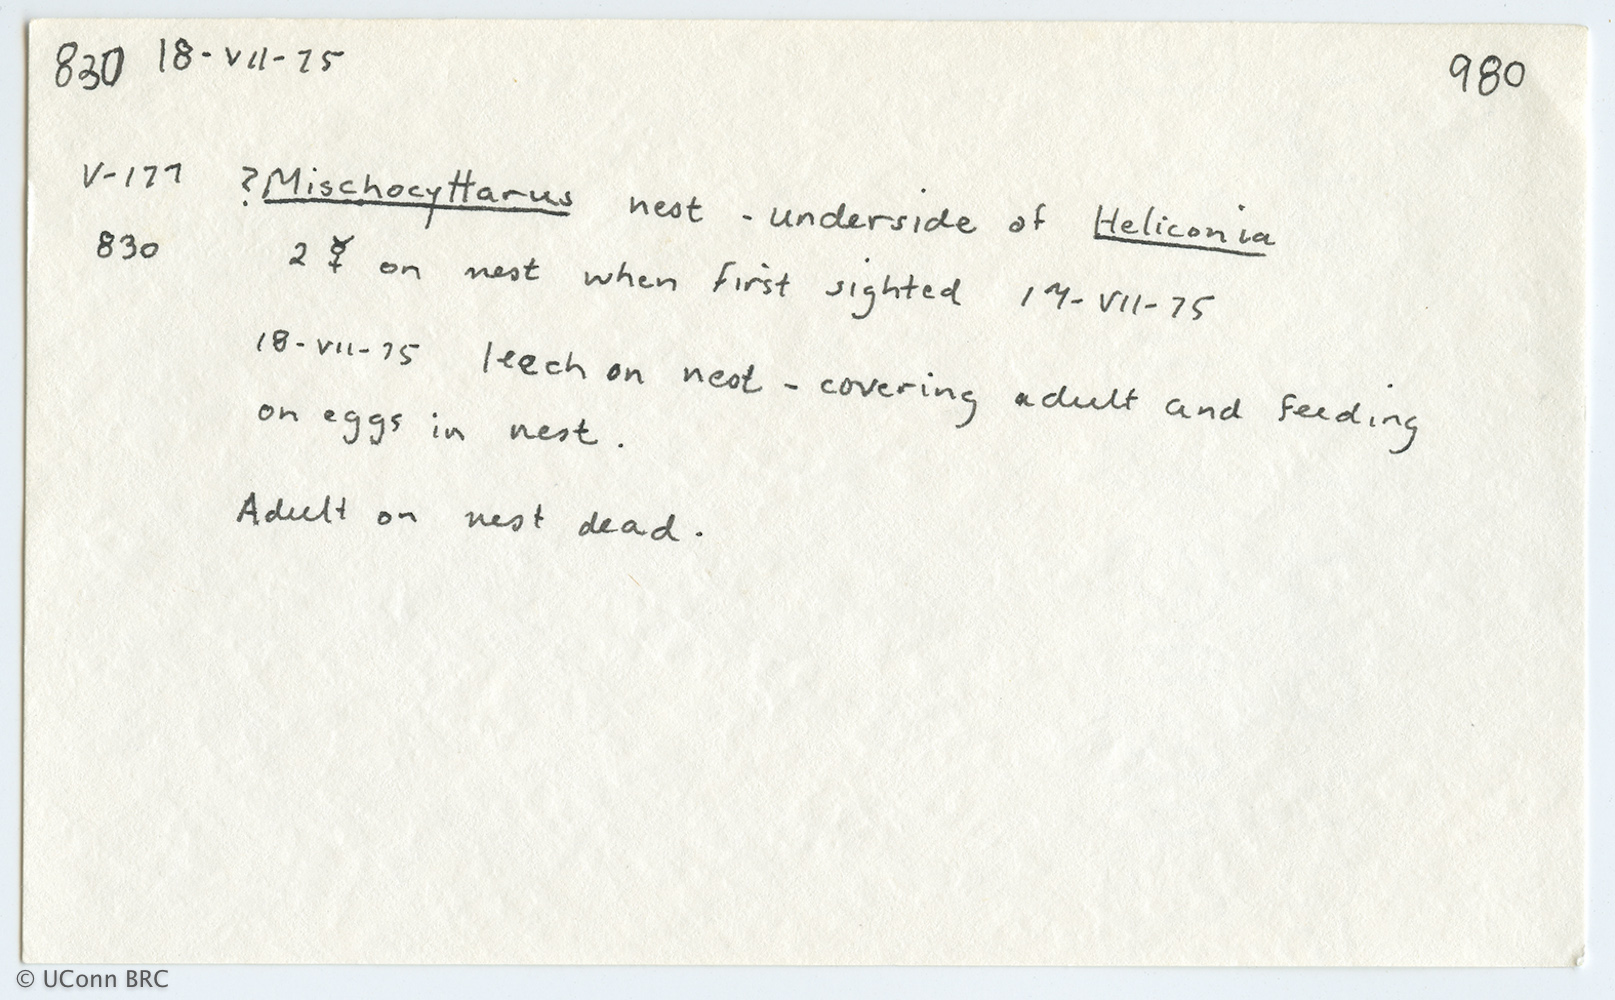 830 18-VII-75 980
V-177 ?Mischocyttarus nest - underside of Heliconia
830 2 ☿ on nest when first sighted 17-VII-75
18-VII-75 leech on nest - covering adult and feeding
on eggs in nest.
Adult on nest dead.
© UConn BRC